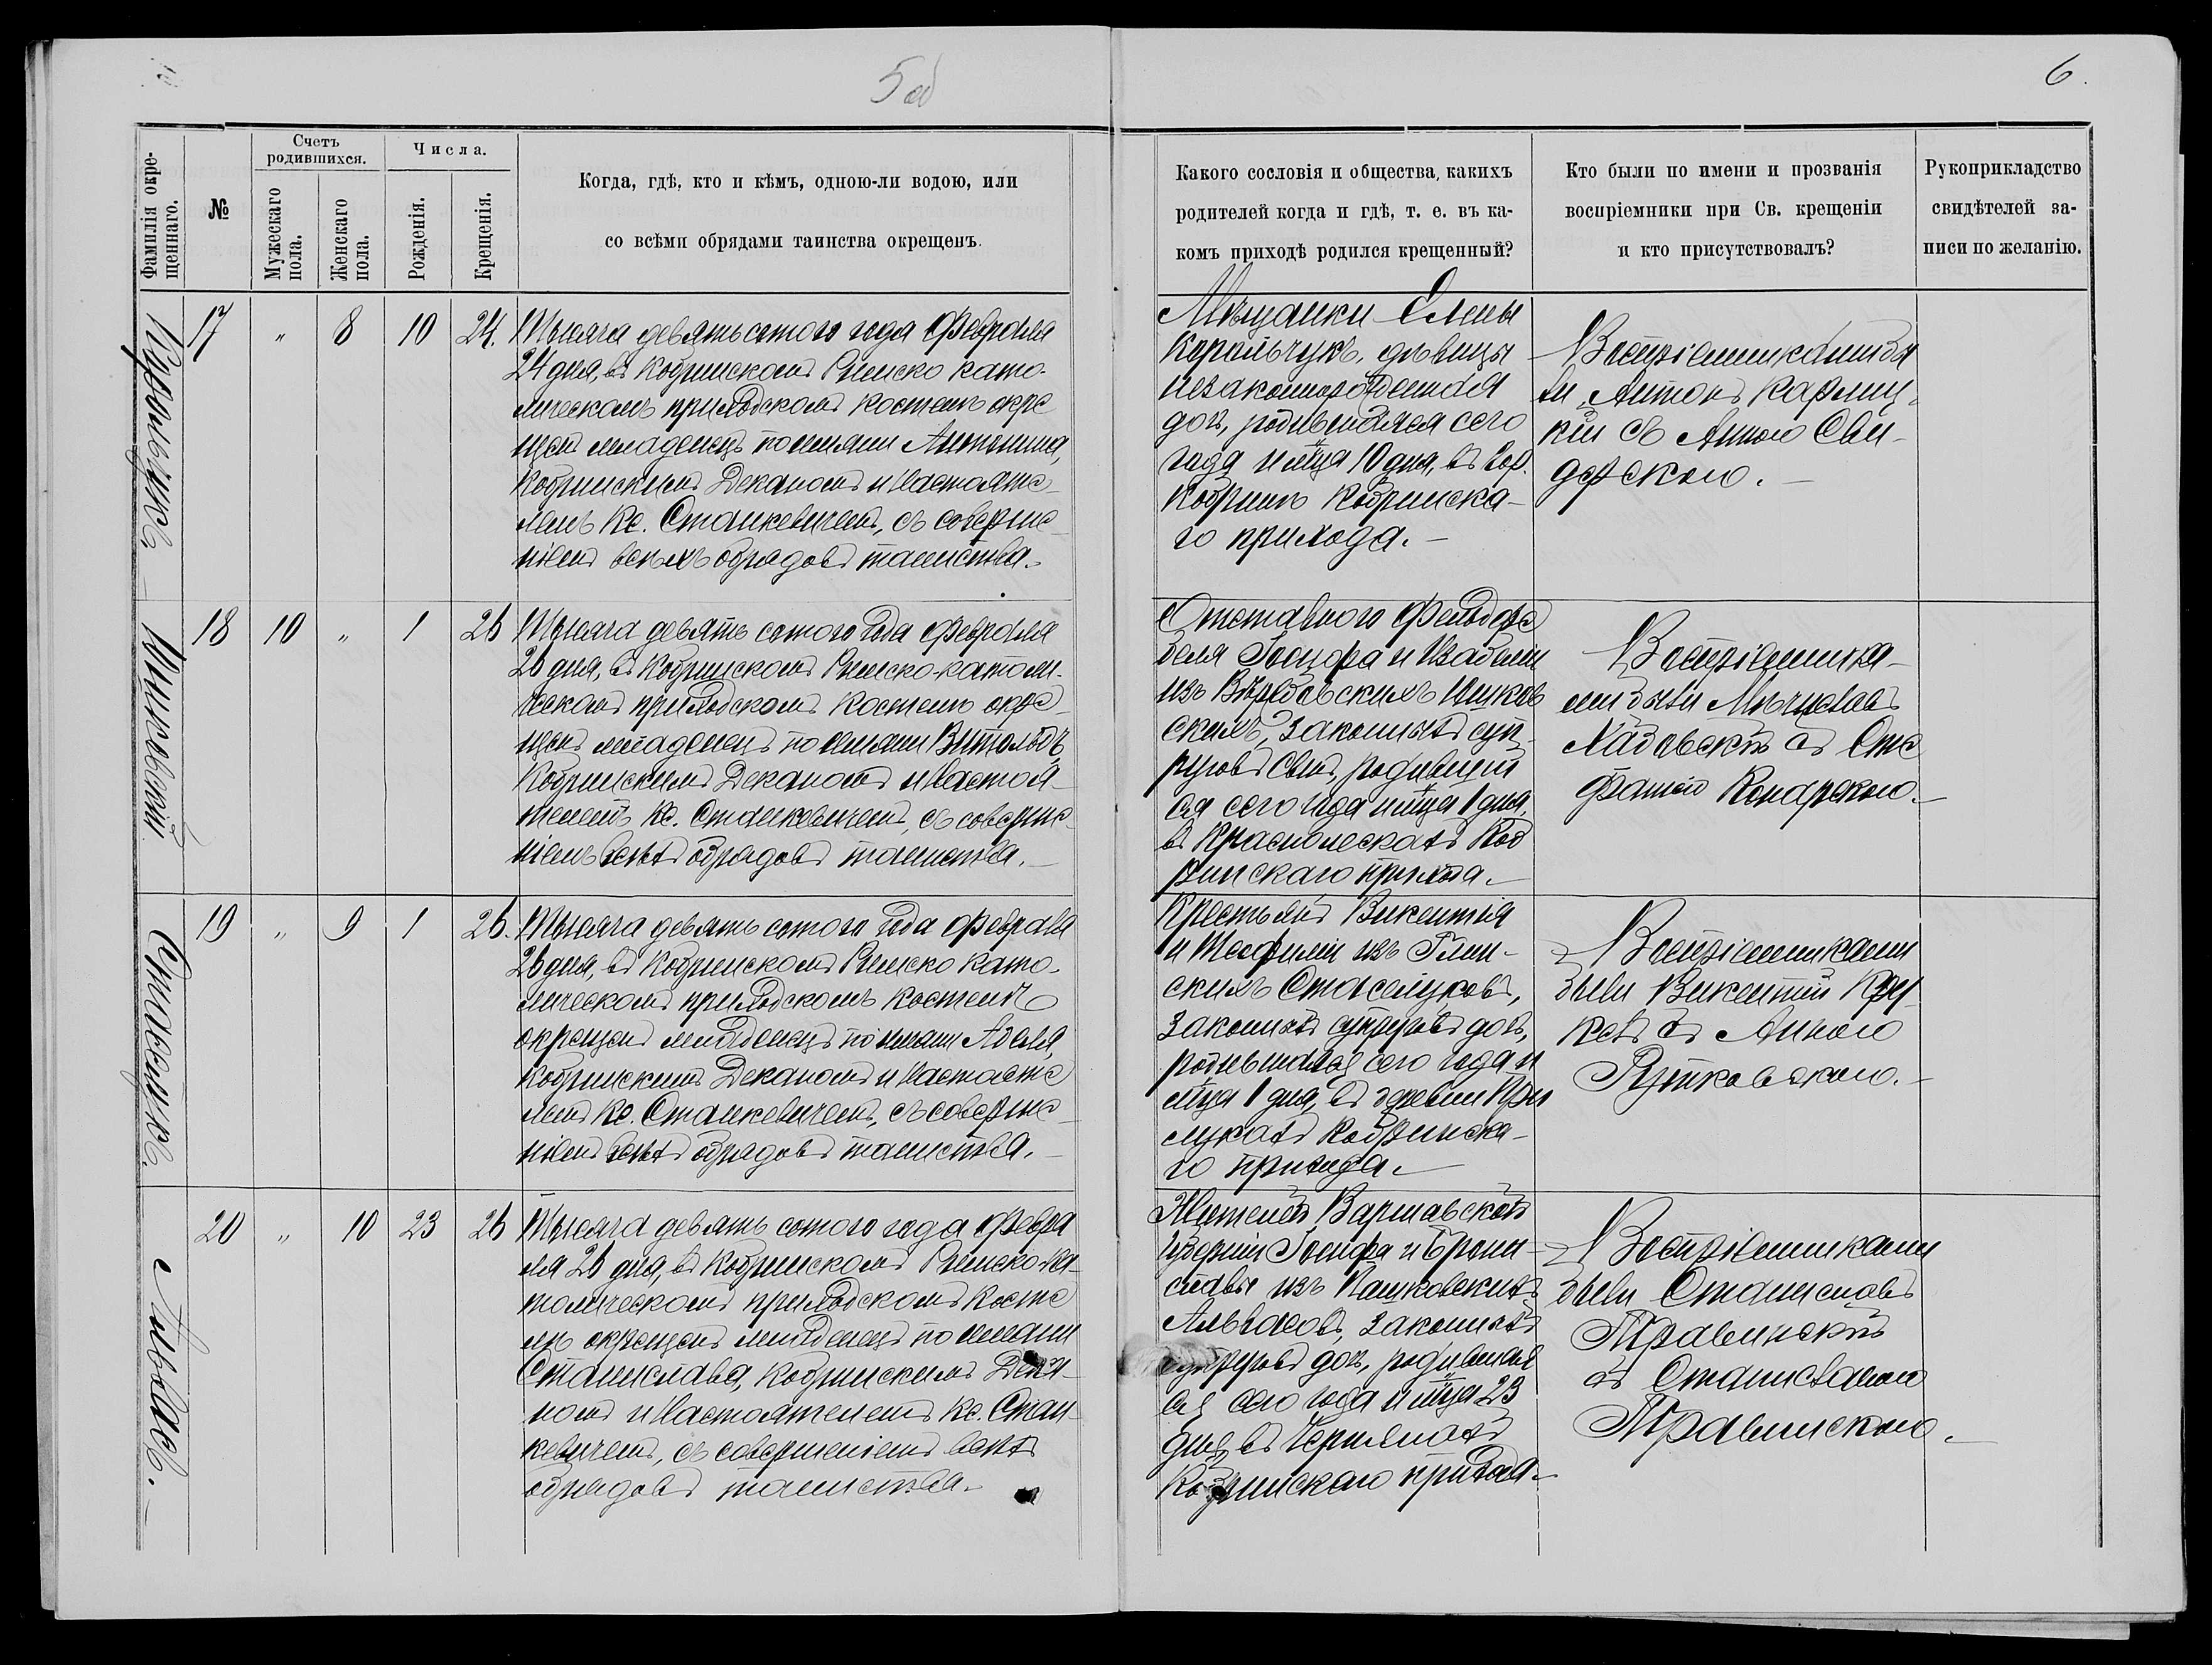 5 об
6.
Фамилія окре-
щеннаго.
№
Счетъ
родившихся.
Мужескаго
пола.
Женскаго
пола.
Числа.
Рожденія.
Крещенія.
Когда, гдѣ, кто и кѣмъ, одною-ли водою, или
со всѣми обрядами таинства окрещенъ.
Какого сословія и общества, какихъ
родителей когда и гдѣ, т. е. въ ка-
комъ приходѣ родился крещенный?
Кто были по имени и прозванія
воспріемники при Св. крещеніи
и кто присутствовалъ?
Рукоприкладство
свидѣтелей за-
писи по желанію.
Корольчукъ.
17 " 8 10 24.
Тысяча девятьсотого года Февраля
24 дня, въ Кобринскомъ Римско като-
лическомъ приходскомъ костелѣ окре
щенъ младенецъ по имяни Антонина,
Кобринскимъ Деканомъ и Настояте-
лемъ Кс. Станкевичемъ, съ соверше-
ніемъ всѣхъ обрядовъ таинства.
Мѣщанки Елены
Корольчукъ, дѣвицы
незаконнорожденная
дочь, родившаяся сего
года и м̃ца 10 дня, въ гор.
Кобринѣ Кобринска-
го прихода.
Воспріемниками бы
ли Антонъ
кій съ Анною Сви-
дерскою.
Шиковскій
18 10 " 1 26
Тысяча девять сотого года Февраля
26 дня, въ Кобринскомъ Римско-католи-
ческомъ приходскомъ костелѣ окре-
щенъ младенецъ по имяни Витольдъ,
Кобринскимъ Деканомъ и Настоя-
телемъ Кс. Станкевичемъ, съ соверше-
ніемъ всѣхъ обрядовъ таинства.
Отставного Фельдфе
беля Іосифа и Изабели
изъ
скихъ, законныхъ суп-
руговъ сынъ, родившій
ся сего года и м̃ца 1 дня,
въ Коб
ринскаго прихода.
Воспріемника-
ми были Мѣчиславъ
съ Сте
фаніею Конарскою.
Стасюкъ.
19 " 9 1 26.
Тысяча девять сотого года Февраля
26 дня, въ Кобринскомъ Римско като-
лическомъ приходскомъ костелѣ
окрещенъ младенецъ по имяни Адэля,
Кобринскимъ Деканомъ и Настояте
лемъ Кс. Станкевичемъ, съ соверше-
ніемъ всѣхъ обрядовъ таинства.
Крестьянъ Викентія
и Теофилии изъ Глин-
скихъ
законныхъ супруговъ дочь,
родившаяся сего года и
м̃ца 1 дня, въ деревни При
лукахъ Кобринска-
го прихода.
Воспріемниками
были Викентій
съ Анною
Рутковскою.
Альвасъ.
20 " 10 23 26
Тысяча девять сотого года Февра
ля 26 дня, въ Кобринскомъ Римско-ка-
толическомъ приходскомъ косте
лѣ окрещенъ младенецъ по имяни
Станислава, Кобринскимъ Дека-
номъ и Настоятелемъ Кс. Стан-
кевичемъ, съ совершеніемъ всѣхъ
обрядовъ таинства.
Жителей Варшавской
губерніи Іосифа и Брони-
славы изъ Пашковскихъ
Альвасовъ, законныхъ
супруговъ дочь, родившая
ся сего года и м̃ца 23
дня, въ
Кобринскаго прихода.
Воспріемниками
были Станиславъ
Травинскій
съ Станиславою
Травинскою.